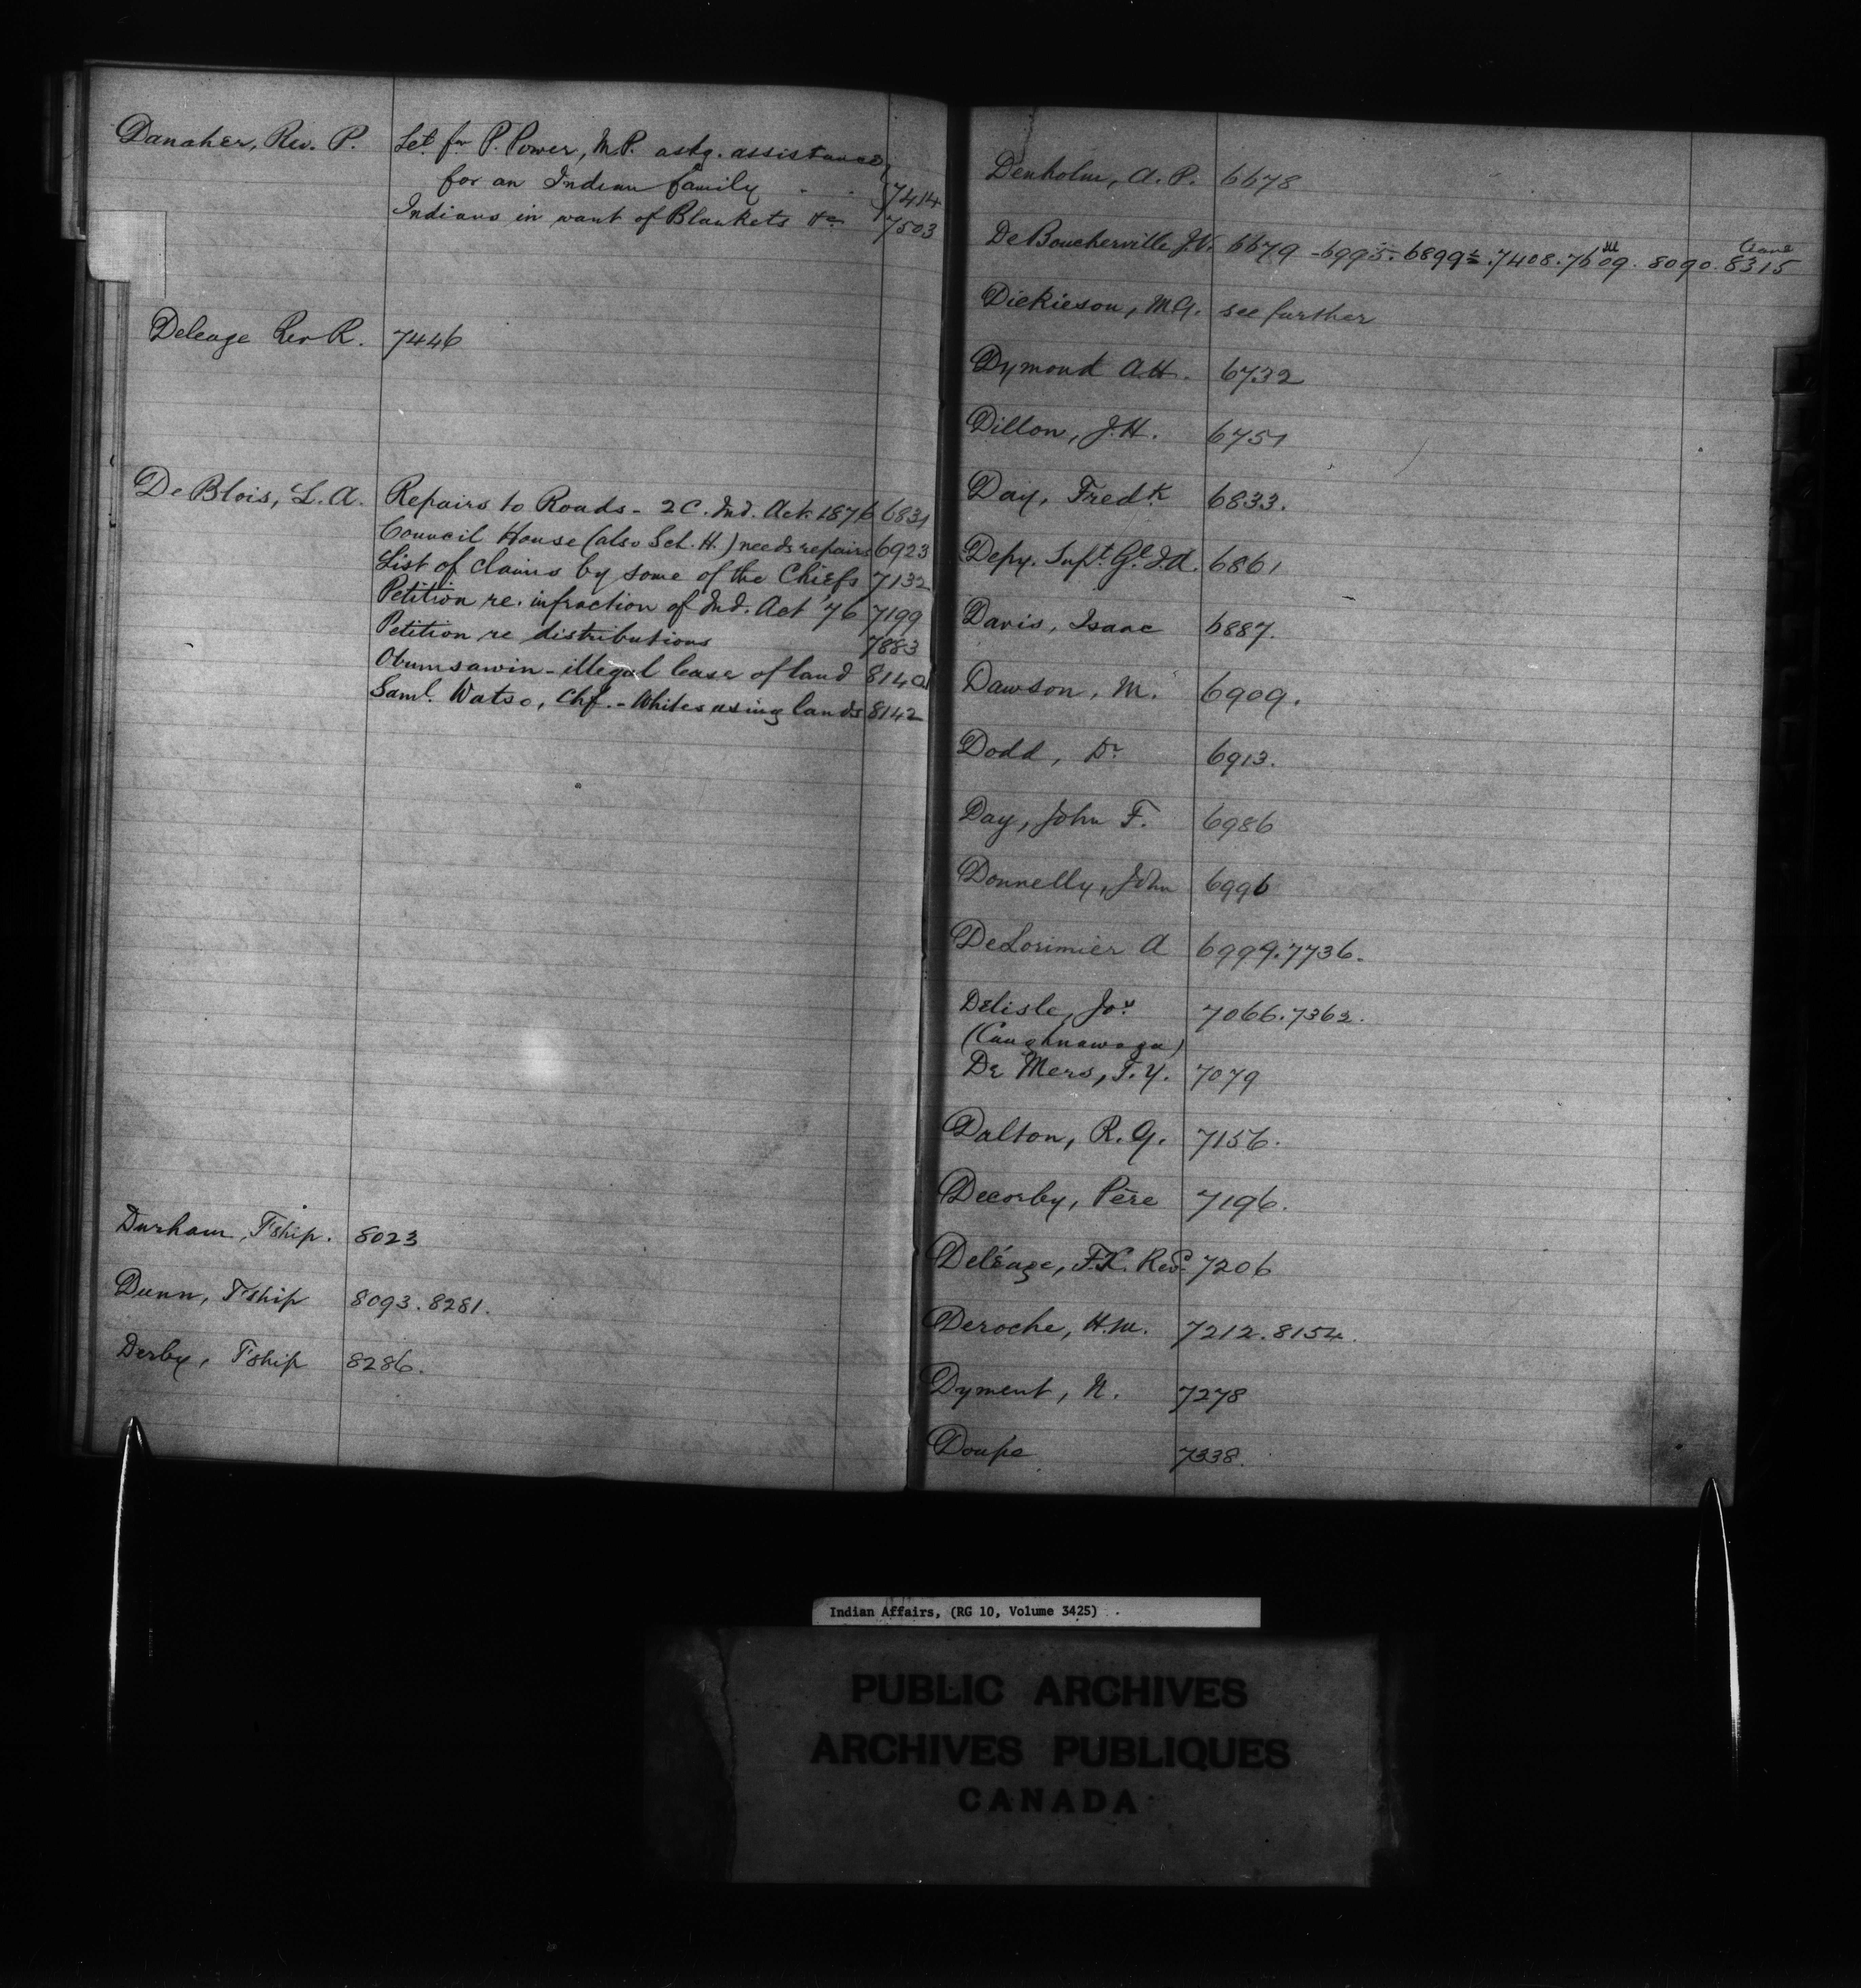 Danaher, Rev. P. Let. fm P. Power, M.P. askg. assistance
for an Indian family . . 7414
Indians in want of Blankets &c 7503
Deleage Rev R. 7446
De Blois, L. A. Repairs to Roads - 2 C. Ind. Act. 1876 6831
Council House (also Sch. H.) needs repairs 6923
List of claims by some of the Chiefs 7132
Petition re. infraction of Ind. Act '76 7199
Petition re distributions 7883
Obumsawin - illegal lease of land 8140
Saml. Watso, Chf. - Whites using lands 8142
Durham, T'ship. 8023
Dunn, T'ship 8093. 8281.
Derby, T'ship 8286.
Denholm, A. P. 6678
De Boucherville J.V. 6679 - 6995. 6899½. 7408. 7609. 8090. 8315
Dickieson, M.G. see further
Dymond A.H. 6732
Dillon, J.H. 6751
Day, Fredk. 6833.
Depy. Supt. Gl. I.A. 6861
Davis, Isaac 6887.
Dawson, M. 6909.
Dodd, Dr 6913.
Day, John F. 6986
Donnelly, John 6996
DeLorimier A 6999. 7736.
Delisle, Jos. 7066. 7362.
(Caughnawaga)
De Mers, T. Y. 7079
Dalton, R. G. 7156.
Decorby, Père 7196.
Deléage, F.R. Revd. 7206
Deroche, H.M. 7212. 8154.
Dyment, N. 7278
Doupe 7338.
Indian Affairs, (RG 10, Volume 3425)
PUBLIC ARCHIVES
ARCHIVES PUBLIQUES
CANADA